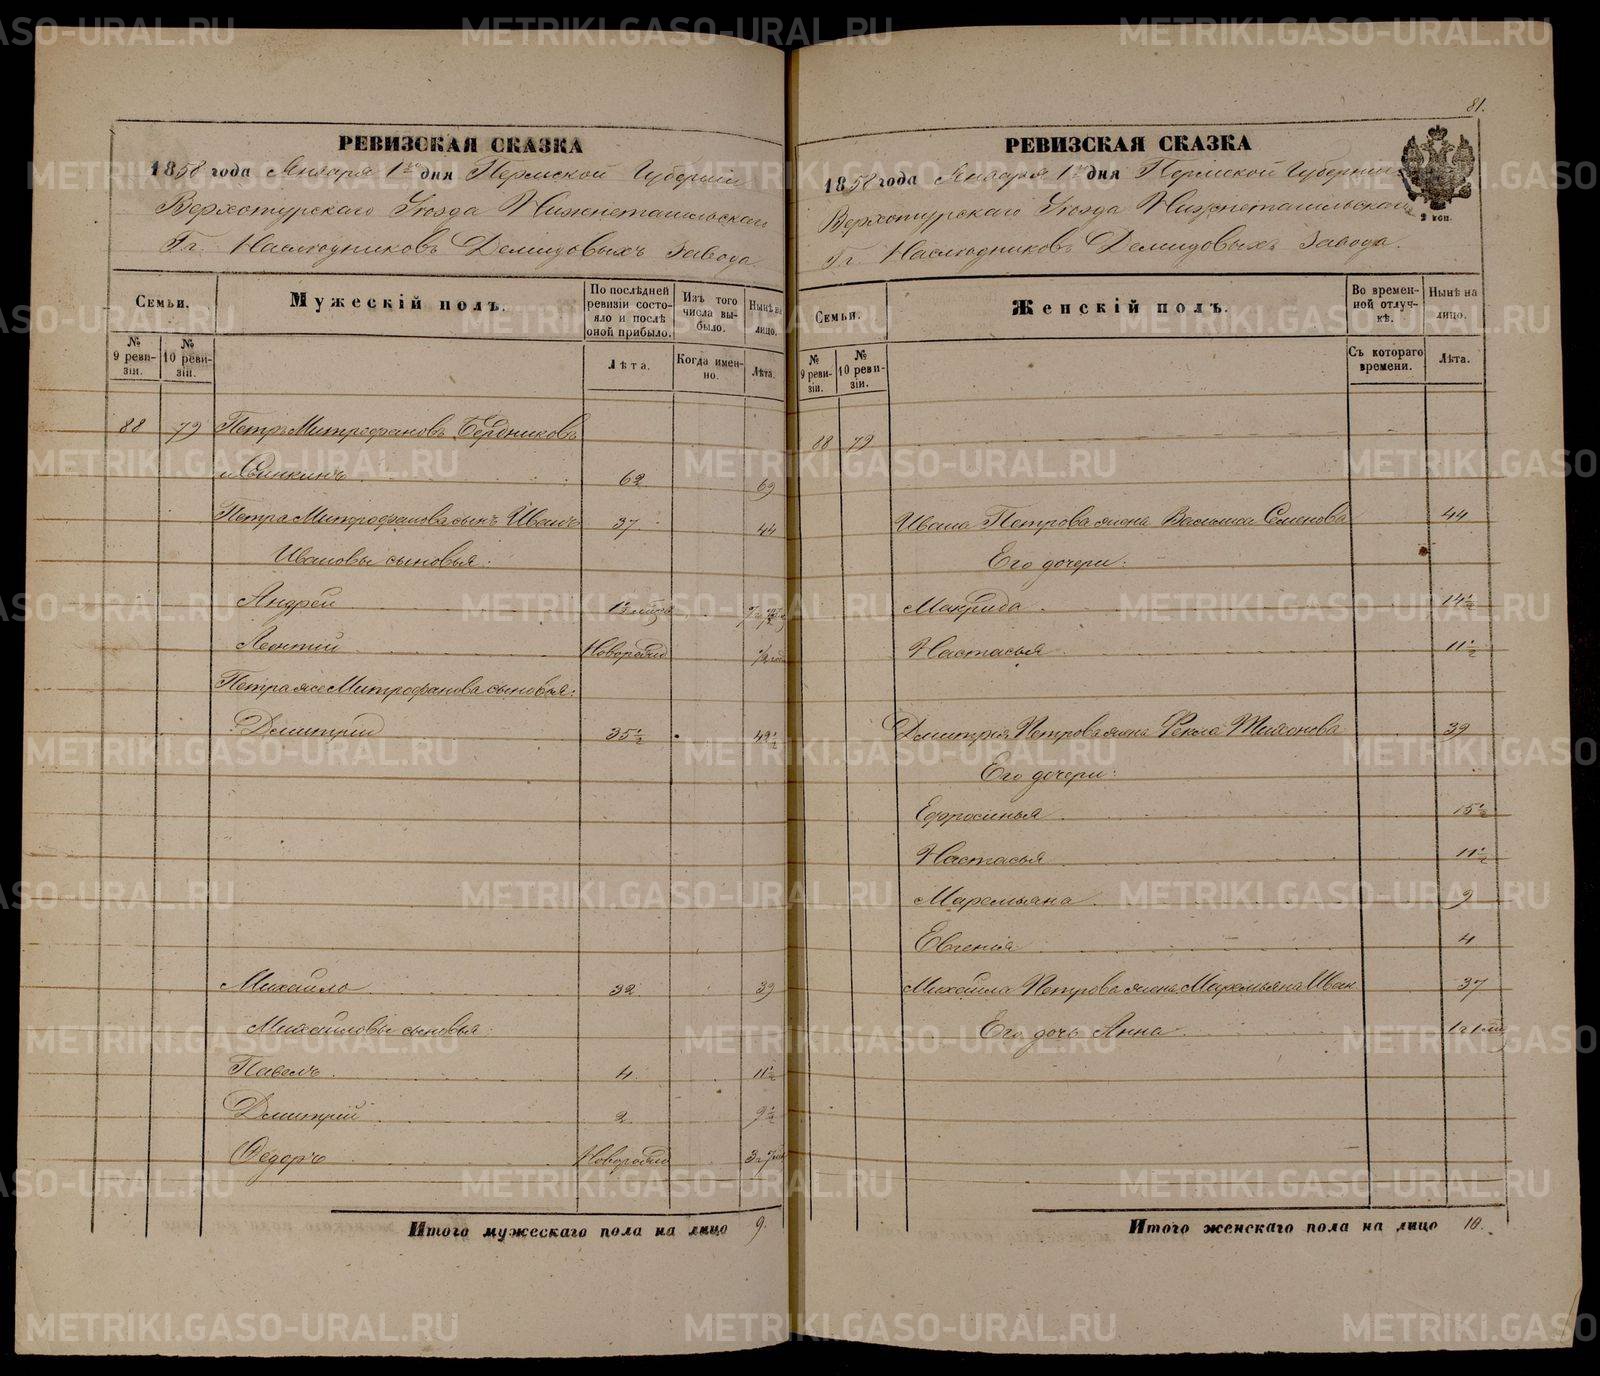 РЕВИЗСКАЯ СКАЗКА
1858 года Января 1го дня Пермской Губерніи
Верхотурскаго Уѣзда Нижнетагильскаго
Гг. Наслѣдниковъ Демидовыхъ Завода
Семьи.
Мужескій полъ.
По послѣдней ревизіи состояло и послѣ оной прибыло.
Изъ того числа выбыло.
Нынѣ на лицо.
№ 9 ревизіи.
№ 10 ревизіи.
Лѣта.
Когда именно.
Лѣта.
88 79 Петръ Митрофановъ Бердниковъ
62 69
Петра Митрофанова сынъ Иванъ 37 44
Ивановы сыновья:
Андрей
Леонтій
Петра же Митрофанова сыновья:
Дмитрій 35½ 42½
Михайло 32 39
Михайловы сыновья:
Павелъ 4 11½
Дмитрій 2 9½
Ѳедоръ
Итого мужескаго пола на лицо 9.
81.
РЕВИЗСКАЯ СКАЗКА
1858 года Января 1го дня Пермской Губерніи
Верхотурскаго Уѣзда Нижнетагильскаго
Гг. Наслѣдниковъ Демидовыхъ Завода.
2 коп.
Семьи.
Женскій полъ.
Во временной отлучкѣ.
Нынѣ на лицо.
№ 9 ревизіи.
№ 10 ревизіи.
Съ котораго времени.
Лѣта.
88 79
Ивана Петрова жена Васьлиса Семенова 44
Его дочери:
Макрида 14½
Настасья 11½
Дмитрія Петрова жена Ѳекла 39
Его дочери:
Ефросинья 15½
Настасья 11½
Маремьяна 9
Евгенія 4
Михайла Петрова жена Маремьяна Иван 37
Его дочь Анна
Итого женскаго пола на лицо 10.
METRIKI.GASO-URAL.RU